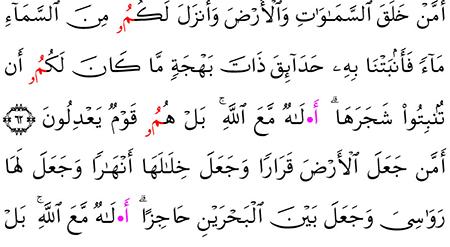 أَمَّنْ خَلَقَ السَّمَٰوَٰتِ وَالْأَرْضَ وَأَنزَلَ لَكُمُۥ مِنَ السَّمَآءِ
مَآءً فَأَنۢبَتْنَا بِهِۦ حَدَآئِقَ ذَاتَ بَهْجَةٍ مَّا كَانَ لَكُمُۥ أَن
تُنۢبِتُوا۟ شَجَرَهَا ۗ أَ•لَٰهٌ مَّعَ اللَّهِ ۚ بَلْ هُمُۥ قَوْمٌ يَعْدِلُونَ ۝٦٢
أَمَّن جَعَلَ الْأَرْضَ قَرَارًا وَجَعَلَ خِلَٰلَهَا أَنْهَٰرًا وَجَعَلَ لَهَا
رَوَٰسِىَ وَجَعَلَ بَيْنَ الْبَحْرَيْنِ حَاجِزًا ۗ أَ•لَٰهٌ مَّعَ اللَّهِ ۚ بَلْ